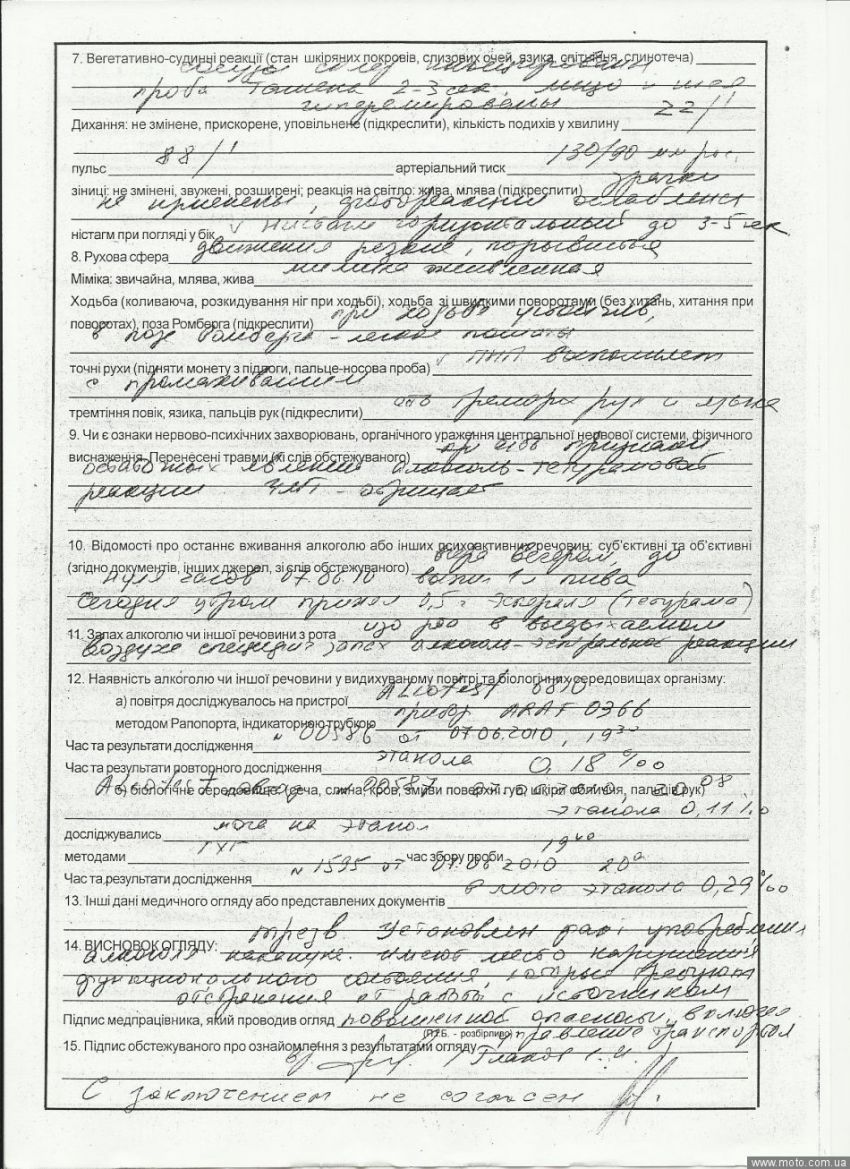 7. Вегетативно-судинні реакції (стан шкіряних покровів, слизових очей, язика, спітніння, слинотеча)
сосуды склер инъецированы
проба Ташена 2-3 сек, лицо и шея
гиперемированы
Дихання: не змінене, прискорене, уповільнене (підкреслити), кількість подихів у хвилину 22/1'
пульс 88/1' артеріальний тиск 130/90 мм рт.
зіниці: не змінені, звужені, розширені; реакція на світло: жива, млява (підкреслити) зрачки
не изменены, фотореакция ослаблена
ністагм при погляді у бік √ Нистагм горизонтальный до 3-5 сек
8. Рухова сфера движения резкие, порывистые
Міміка: звичайна, млява, жива мимика оживленная
Ходьба (коливаюча, розкидування ніг при ходьбі), ходьба зі швидкими поворотами (без хитань, хитання при
поворотах), поза Ромберга (підкреслити) при ходьбе устойчив,
в позе Ромберга - легкое пошаты
точні рухи (підняти монету з підлоги, пальце-носова проба) √ ПНП выполняет
с промахиванием
тремтіння повік, язика, пальців рук (підкреслити) есть тремор рук и языка
9. Чи є ознаки нервово-психічних захворювань, органічного ураження центральної нервової системи, фізичного
виснаження. Перенесені травми (зі слів обстежуваного) при признаки
остаточных явлений алкоголь-тетурамовой
реакции ЧМТ - отрицает
10. Відомості про останнє вживання алкоголю або інших психоактивних речовин: суб'єктивні та об'єктивні
(згідно документів, інших джерел, зі слів обстежуваного) вчера вечером, до
нуля часов 07.06.10 выпил 1л пива
Сегодня утром принял 0,5 г Эспераля (тетурама)
11. Запах алкоголю чи іншої речовини з рота изо рта в выдыхаемом
воздухе специфич запах алкоголь-эсперальной реакции
12. Наявність алкоголю чи іншої речовини у видихуваному повітрі та біологічних середовищах організму:
а) повітря досліджувалось на пристрої Alcotest 6810
методом Рапопорта, індикаторною трубкою прибор ARAF 0366
Час та результати дослідження № 00586 от 07.06.2010, 19³⁰
Час та результати повторного дослідження этанола 0,18 ‰
б) біологічне середовище (сеча, слина, кров, змиви поверхні губ, шкіри обличчя, пальців рук)
Alcotest № 00587 07.06.2010, 20⁰⁸
этанола 0,11 ‰
досліджувались моча на этанол
методами ГХГ час збору проби 19⁴⁰
Час та результати дослідження № 1595 от 07.06.2010 20
13. Інші дані медичного огляду або представлених документів в моче этанола 0,29 ‰
14. ВИСНОВОК ОГЛЯДУ: трезв Установлен факт употребления
алкоголя накануне. Имеют место нарушения
функционального состояния, которые требуют
отстранения от работы с источником
Підпис медпрацівника, який проводив огляд повышенной опасности, включая
(П.І.Б. - розбірливо) управление транспортом
15. Підпис обстежуваного про ознайомлення з результатами огляду
С заключением не согласен
www.moto.com.ua